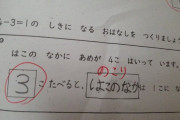 4-3=1の しきに なる おはなしを つくりましょう
はこの なかに あめが 4こ はいって います。
のこり
3こ たべると、はこのなかは 1こに な